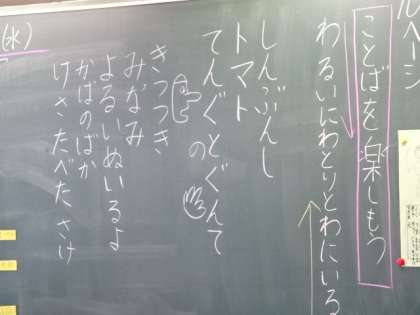 ページ
ことばを楽しもう
わるいにわとりとわにいる
しんぶんし
トマト
てんぐとぐんて
の
きつつき
みなみ
よるいぬいるよ
かばのばか
けさたべた さけ
(水)